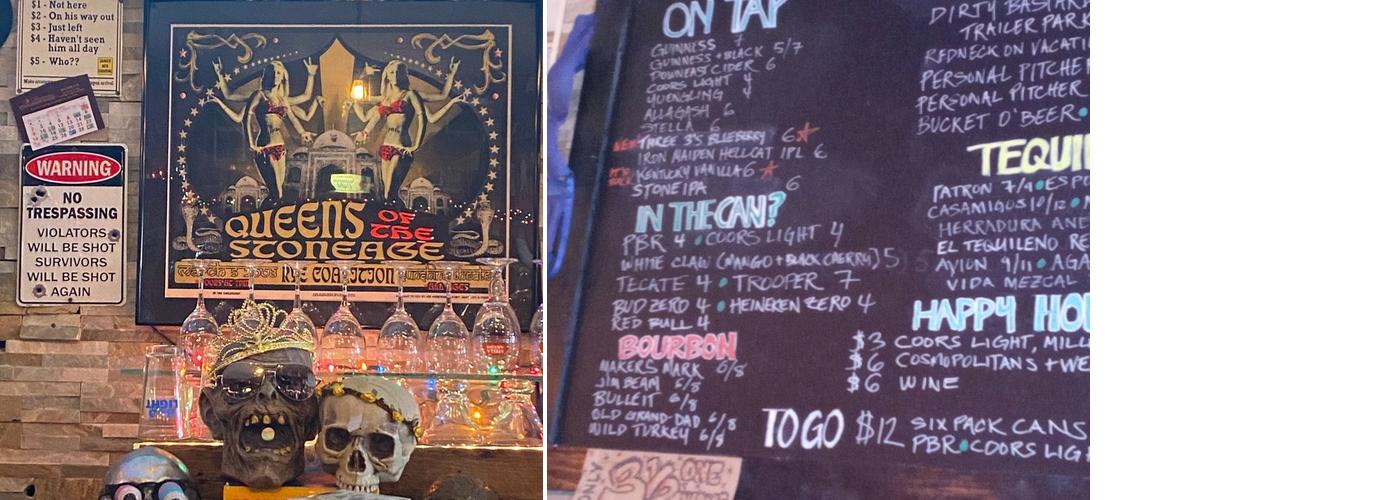 $1 - Not here
$2 - On his way out
$3 - Just left
$4 - Haven't seen
him all day
$5 - Who??
WARNING
NO
TRESPASSING
VIOLATORS
WILL BE SHOT
SURVIVORS
WILL BE SHOT
AGAIN
QUEENS OF
THE
STONEAGE
ON TAP
GUINNESS 7
GUINNESS + BLACK 5/7
DOWNEAST CIDER 6
COORS LIGHT 4
YUENGLING 4
ALLAGASH 6
STELLA 6
NEW THREE 3'S BLUEBERRY 6
IRON MAIDEN HELLCAT IPL 6
KENTUCKY VANILLA 6
STONE IPA 6
IN THE CAN?
PBR 4 • COORS LIGHT 4
WHITE CLAW (MANGO + BLACK CHERRY) 5
TECATE 4 • TROOPER 7
BUD ZERO 4 • HEINEKEN ZERO 4
RED BULL 4
BOURBON
MAKERS MARK 6/8
JIM BEAM 6/8
BULLEIT 6/8
OLD GRAND-DAD 6/8
WILD TURKEY 6/8
DIRTY BASTAR
TRAILER PARK
REDNECK ON VACATI
PERSONAL PITCHE
PERSONAL PITCHER
BUCKET O' BEER •
TEQUI
PATRON 7/9 • ESPO
CASAMIGOS 10/12 •
HERRADURA ANE
EL TEQUILENO RE
AVION 9/11 • AGA
VIDA MEZCAL
HAPPY HOU
$3 COORS LIGHT, MILL
$6 COSMOPOLITANS + WE
$6 WINE
TO GO $12 SIX PACK CANS
PBR • COORS LIG